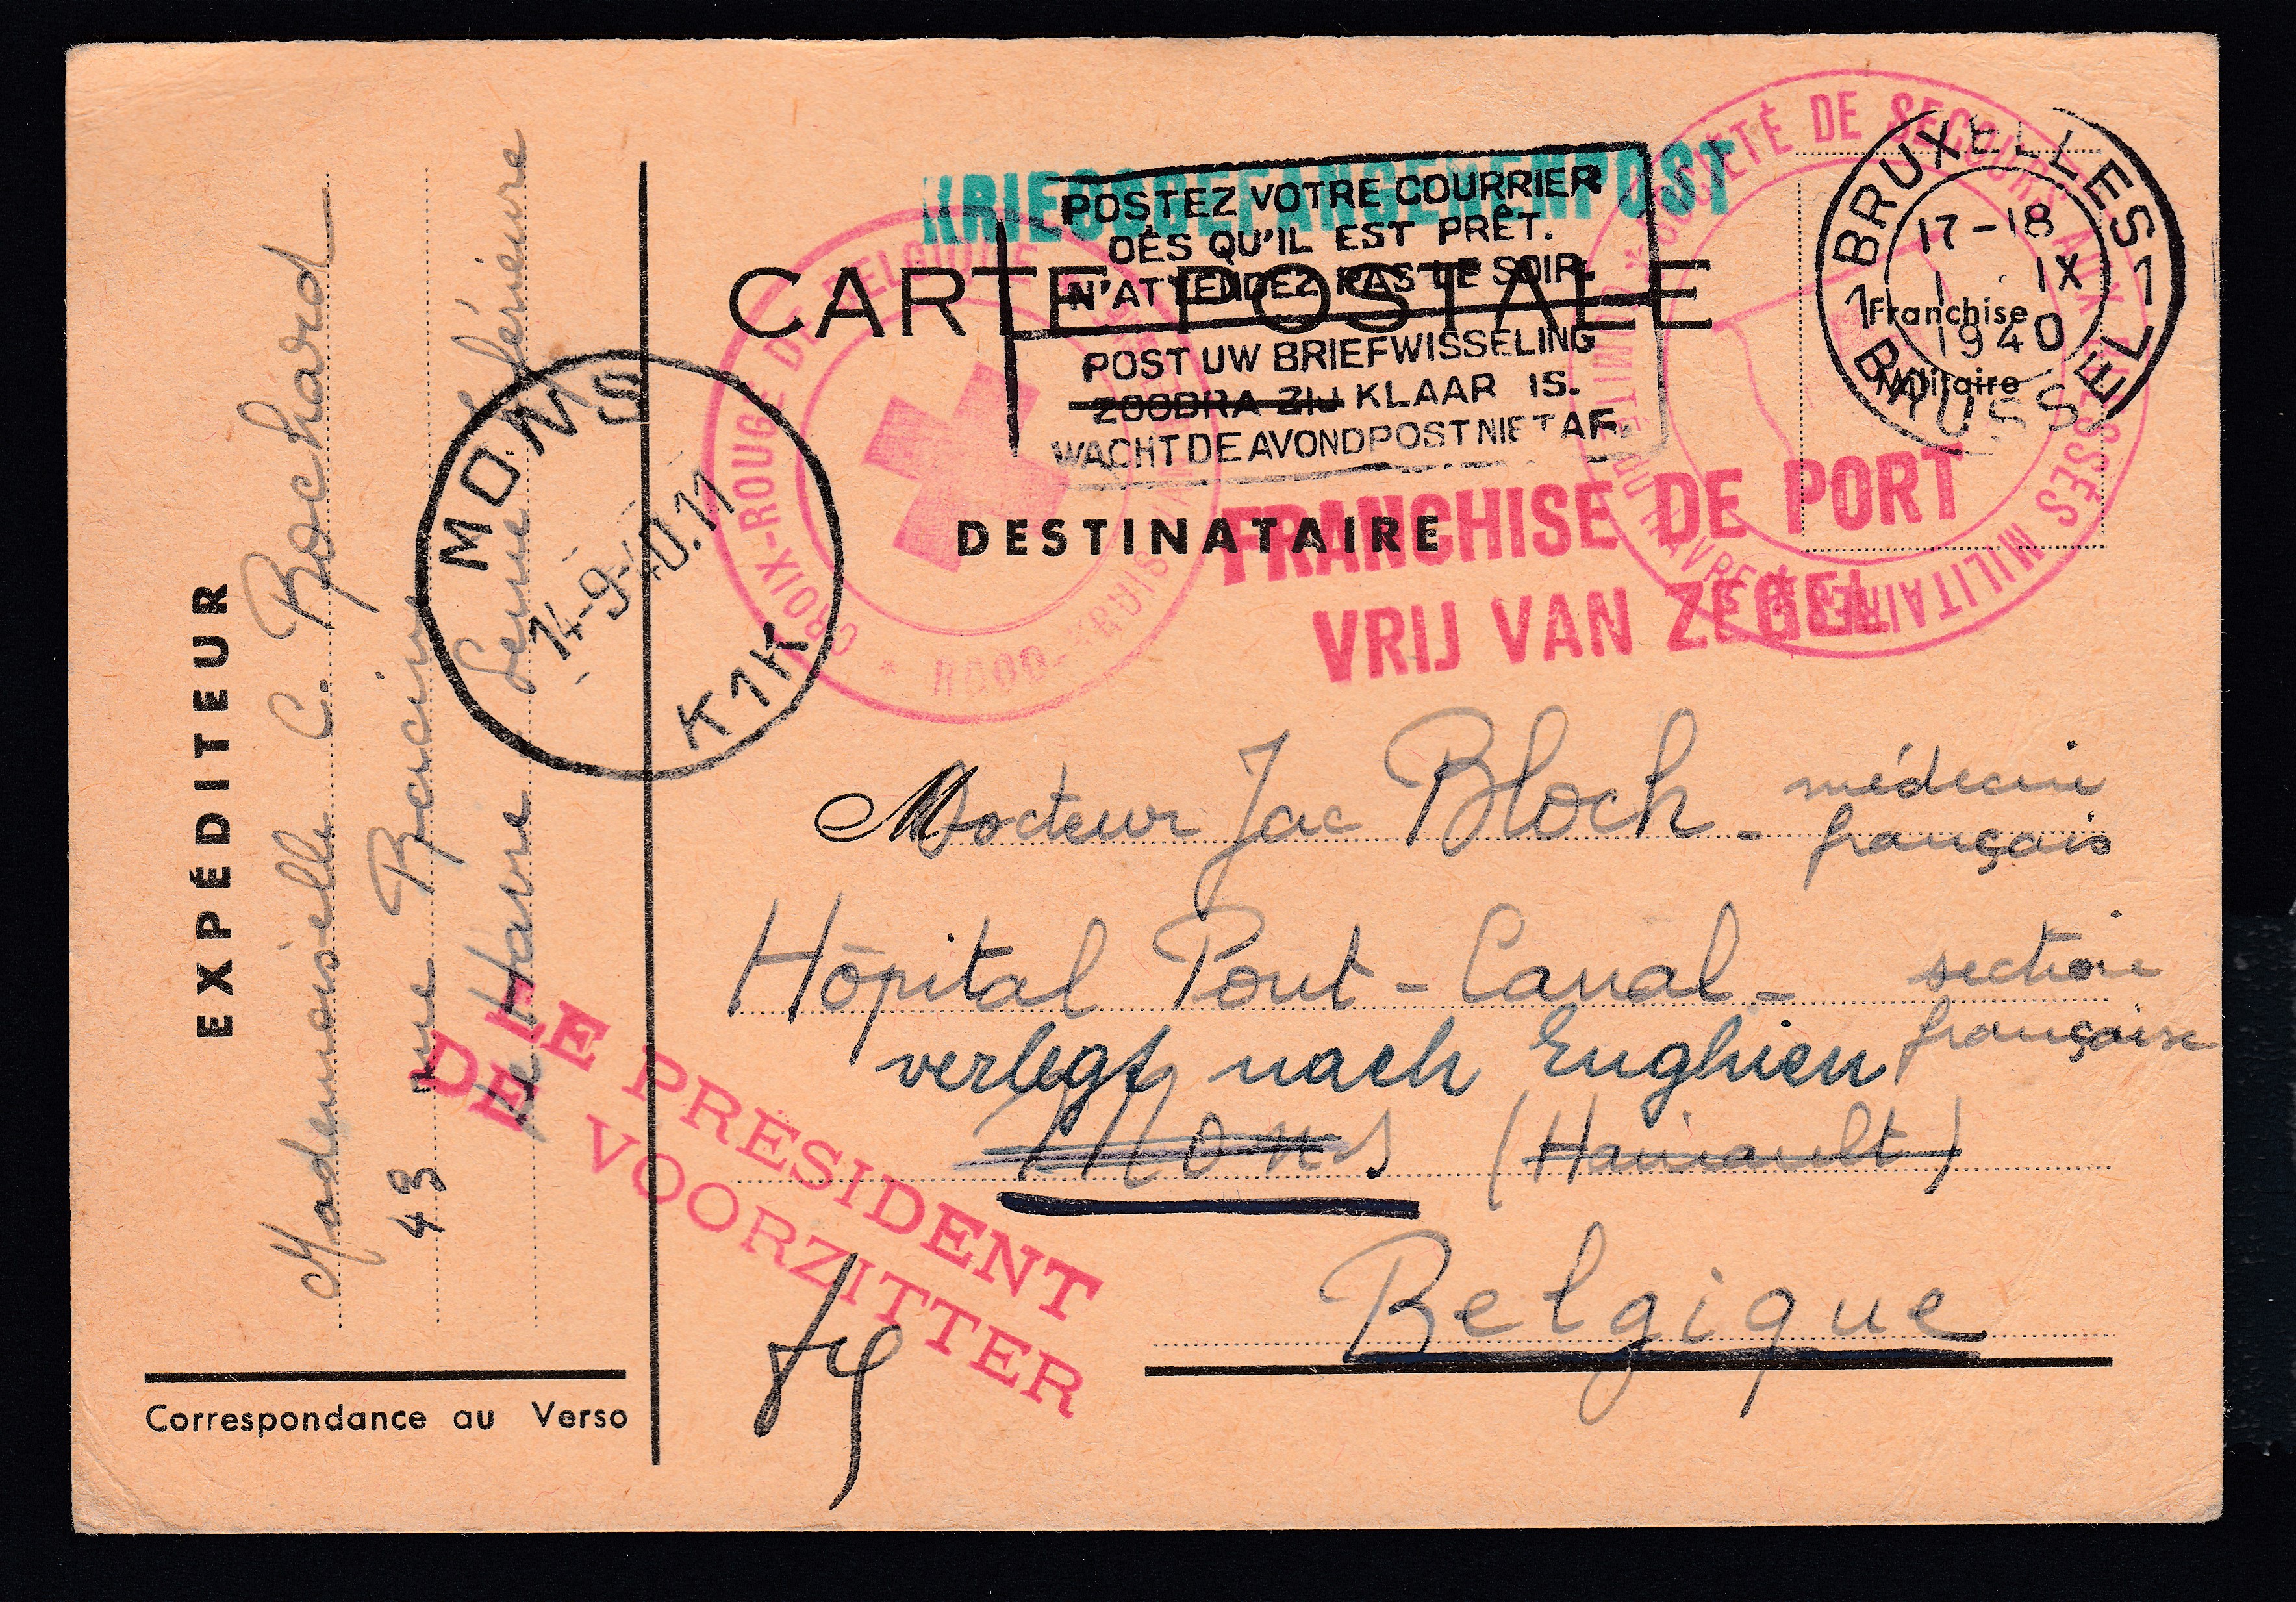 KRIEGSGEFANGENENPOST
POSTEZ VOTRE COURRIER
DÈS QU'IL EST PRÊT.
N'ATTENDEZ PAS LE SOIR.
POST UW BRIEFWISSELING
ZOODRA ZIJ KLAAR IS.
WACHT DE AVONDPOST NIET AF.
SOCIÉTÉ DE SECOURS AUX BLESSÉS MILITAIRES
COMITÉ DU HAVRE
1 BRUXELLES 1
17-18
1 IX
1940
1 BRUSSEL 1
Franchise
Militaire
CARTE POSTALE
CROIX-ROUGE DE BELGIQUE
ROOD-KRUIS VAN
DESTINATAIRE
FRANCHISE DE PORT
VRIJ VAN ZEGEL
MONS
14-9-40.11
K1K
EXPÉDITEUR
Mademoiselle C. Rochard
43 rue Racine
Le Havre Seine Inférieure
M Docteur Jac Bloch - médecin
français
Hôpital Pont-Canal - section
française
verlegt nach Enghien
Mons (Hainault)
Belgique
LE PRÉSIDENT
DE VOORZITTER
Correspondance au Verso